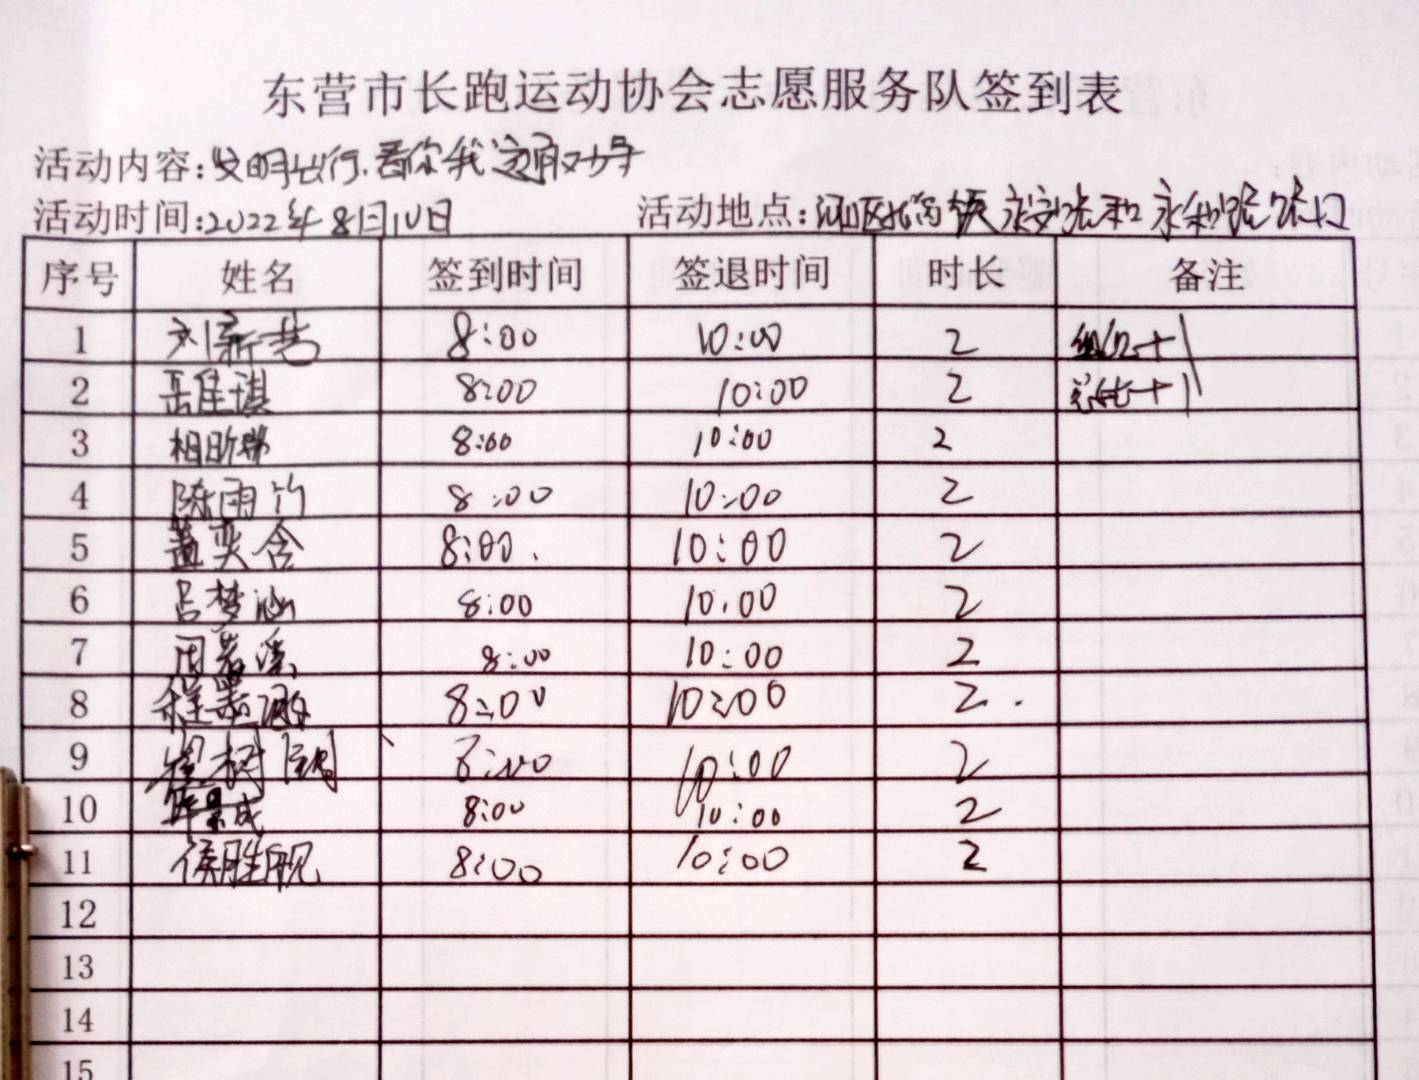 东营市长跑运动协会志愿服务队签到表
活动内容:文明出行.看你我 这取对号
活动时间:2022年8月10日 活动地点:河口区 永安 和 永和 路口
序号 姓名 签到时间 签退时间 时长 备注
1 刘新 8:00 10:00 2 组织+1
2 岳佳琪 8:00 10:00 2 总结+1
3 相昕 8:00 10:00 2
4 陈雨竹 8:00 10:00 2
5 盖奕含 8:00 10:00 2
6 吕梦涵 8:00 10:00 2
7 周若溪 8:00 10:00 2
8 8:00 10:00 2
9 崔树 8:00 10:00 2
10 景成 8:00 10:00 2
11 侯胜 8:00 10:00 2
12
13
14
15